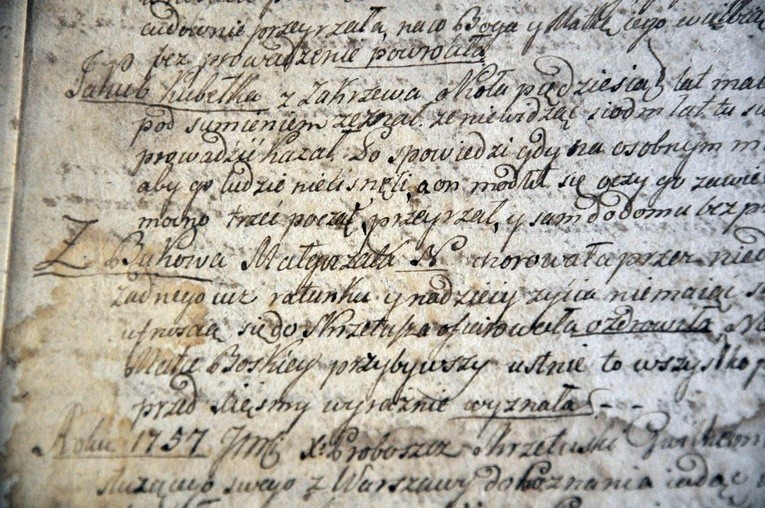 cudownie przeyrzała, na co Boga y Matkę iego
bez prowadzenia powrociła
Jakub Kubełka z Zakrzewa około pięćdziesiąt lat
pod sumieniem zeznał, ze niewidząc siodm lat, tu
prowadzić kazał. Do spowiedzi gdy na osobnym
aby go ludzie niecisnęli, a on modlił się oczy go
mocno trzeć począł, przeyrzał, y sam do domu bez
Z Bukowa Małgorzata N chorowała przez
żadnego iuz ratunku y nadzieię zycia niemaiąc
ufnoscią się do Skrzetusza ofiarowała ozdrowiła
Matce Boskiey przybywszy ustnie to wszystko
przed xięzmy wyraznie wyznała
Roku 1757 Jmć X. Proboszcz Skrzetuski
służącego swego z Warszawy do Poznania iadąc